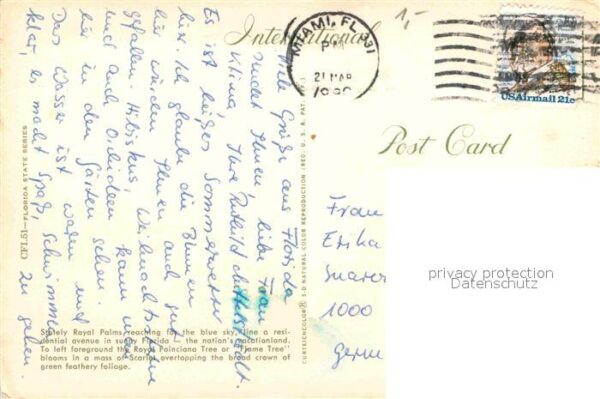 International
Post Card
MIAMI, FL 331
PM
21 MAR
USAirmail 21c
1,-
Viele Grüße aus Florida
sendet Ihnen, liebe Frau
Ihre
Es ist heißes Sommerwetter
hier. Ich glaube die Blumen
hier würden Ihnen auch gut
gefallen. Hibiskus, Weihnachtssterne
und auch Orchideen kann man
hier in den Gärten sehen.
Das Wasser ist warm und
klar, es macht Spaß, schwimmen
zu gehen.
Frau
Erika
1000
Germ
privacy protection
Datenschutz
CFL51—FLORIDA STATE SERIES
CURTEICHCOLOR® 3-D NATURAL COLOR REPRODUCTION (REG. U. S. A. PAT. OFF.)
Stately Royal Palms reaching for the blue sky, line a resi-
dential avenue in sunny Florida — the nation's vacationland.
To left foreground the Royal Poinciana Tree or "Flame Tree"
blooms in a mass of Scarlet overtopping the broad crown of
green feathery foliage.